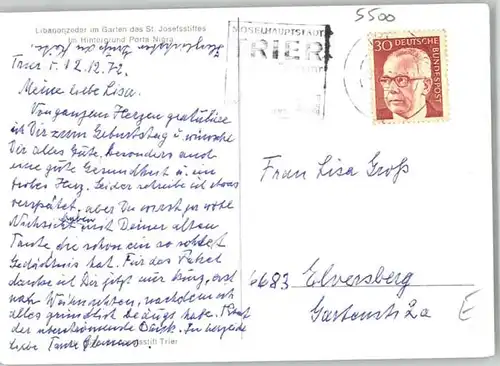 Libanonzeder im Garten des St. Josefsstiftes
im Hintergrund Porta Nigra
Trier d. 12.12.72.
Meine liebe Lisa.
Von ganzem Herzen gratuliere
ich Dir zum Geburtstag u. wünsche
Dir alles Gute, besonders
eine gute Gesundheit u. ein
frohes Herz. Leider schreibe ich etwas
verspätet, aber Du wirst ja wohl
Nachsicht haben mit Deiner alten
Tante die schon ein so schlechtes
Gedächtnis hat. Für das Paket
danke ich Dir jetzt nur kurz, erst
nach Weihnachten, nachdem ich
alles gründlich
der Dank.
liebe Tante
stift Trier
5500
MOSELHAUPTSTADT
TRIER
30
DEUTSCHE BUNDESPOST
Frau Lisa Groß
6683 Elversberg
Gartenstr 2a
E